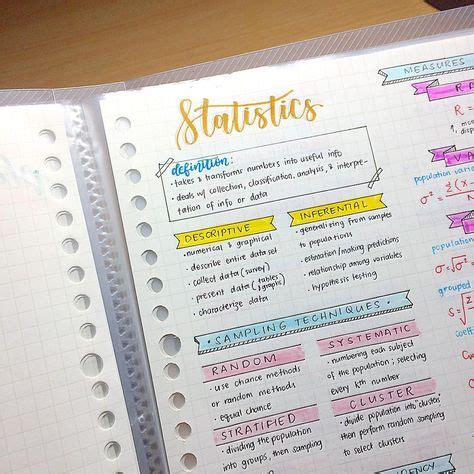 Statistics
definition:
• takes & transforms numbers into useful info
• deals w/ collection, classification, analysis, & interpre-
tation of info or data
DESCRIPTIVE
• numerical & graphical
• describe entire dataset
• collect data (survey)
• present data (tables
& graphs)
• characterize data
INFERENTIAL
• generalizing from samples
to populations
• estimation/making predictions
• relationship among variables
• hypothesis testing
• SAMPLING TECHNIQUES •
RANDOM
• use chance methods
or random methods
• equal chance
STRATIFIED
• dividing the population
into groups, then sampling
SYSTEMATIC
• numbering each subject
of the population ; selecting
every kth number
CLUSTER
• divide population into "clusters"
then perform random sampling
to select clusters
MEASURES
R =
population
σ² =
population
σ = √σ²
grouped
S =